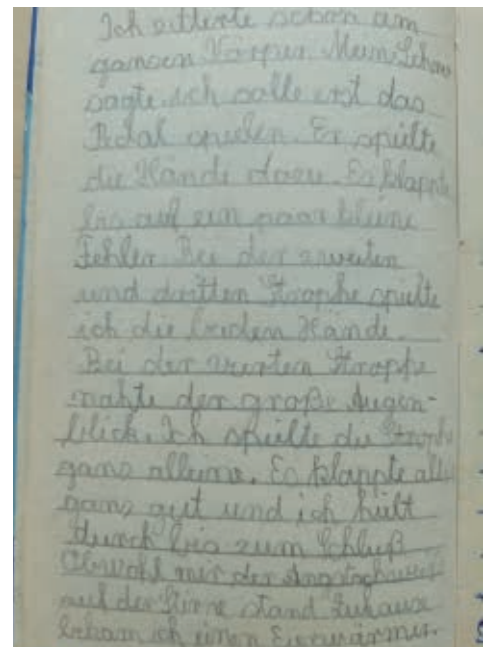 Ich zitterte schon am
ganzen Körper. Mein Lehrer
sagte ich solle erst das
Pedal spielen. Er spielte
die Hände dazu. Es klappte
bis auf ein paar kleine
Fehler. Bei der zweiten
und dritten Strophe spielte
ich die beiden Hände.
Bei der vierten Strophe
nahte der große Augen-
blick. Ich spielte die Strophe
ganz alleine. Es klappte alles
ganz gut und ich hielt
durch bis zum Schluß
Obwohl mir der Angstschweiß
auf der Stirne stand Zuhause
bekam ich einen Eierwärmer.